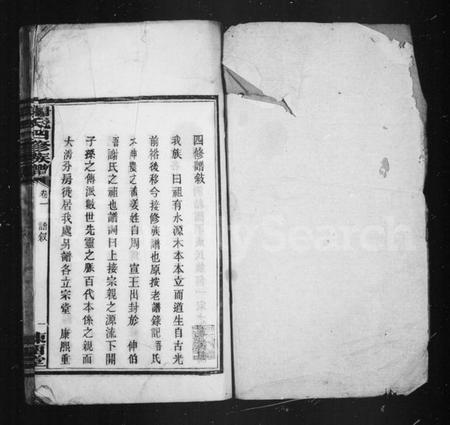 四修譜敘
我族 曰祖有水源木本本立而道生自古光
前裕後移今接修族譜也原按老譜錄記吾氏
神農之裔姜姓自周 宣王出封於 伸伯
吾謝氏之祖也譜詞曰上接宗親之源流下開
子孫之傳派數世先靈之脈百代本係之親而
大湾分房徙居我處另譜各立宗堂 康熙重
氏四修族譜
卷一 譜敘
一